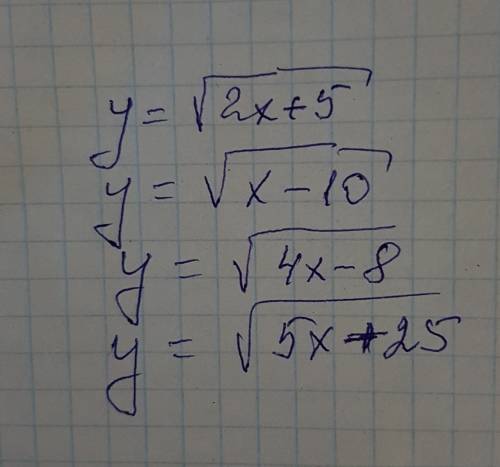 y = √(2x+5)
y = √(x-10)
y = √(4x-8)
y = √(5x+25)